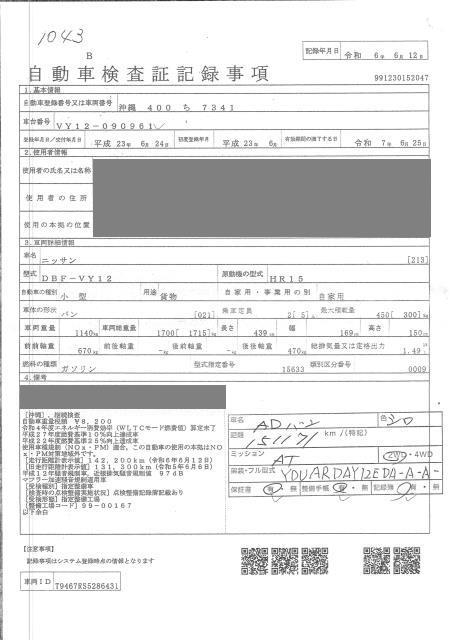 1043
B
記録年月日 令和 6年 6月 12日
自動車検査証記録事項
991230152047
1. 基本情報
自動車登録番号又は車両番号 沖縄 400 ち 7341
車台番号 VY12-090961
登録年月日/交付年月日 平成 23年 6月 24日 初度登録年月 平成 23年 6月 有効期間の満了する日 令和 7年 6月 25日
2. 使用者情報
使用者の氏名又は名称
使用者の住所
使用の本拠の位置
3. 車両詳細情報
車名 ニッサン [213]
型式 DBF-VY12 原動機の型式 HR15
自動車の種別 小型 用途 貨物 自家用・事業用の別 自家用
車体の形状 バン [021] 乗車定員 2[ 5]人 最大積載量 450[ 300]kg
車両重量 1140kg 車両総重量 1700[ 1715]kg 長さ 439cm 幅 169cm 高さ 150cm
前前軸重 670kg 前後軸重 -kg 後前軸重 -kg 後後軸重 470kg 総排気量又は定格出力 1.49
燃料の種類 ガソリン 型式指定番号 15633 類別区分番号 0009
4. 備考
[沖縄], 継続検査
自動車重量税 ¥8,200
令和4年度エネルギー消費効率(WLTCモード燃費値)算定未了
平成27年度燃費基準10%向上達成車
平成22年度燃費基準25%向上達成車
使用車種規制(NOx・PM)適合, この自動車の使用の本拠はNOx・PM対策地域外です。
[走行距離計表示値] 142,200km (令和6年6月12日)
[旧走行距離計表示値] 131,300km (令和5年6月6日)
平成12年騒音規制車, 近接排気騒音規制値 97dB
マフラー加速騒音規制適用車
[受検種別] 指定整備車
[検査時の点検整備実施状況] 点検整備記録簿記載あり
[受検形態] 指定整備工場
[整備工場コード] 99-00167
以下余白
車名 ADバン 色 シロ
距離 151171 km/(特記)
ミッション AT 2WD・4WD
類別・フル型式 YDUARDAY12EDA-A-A-
保証書 有・無 整備手帳 有・無 記録簿 有・無
【注意事項】
記録事項はシステム登録時点の情報となります
車両ID T9467RS5286431